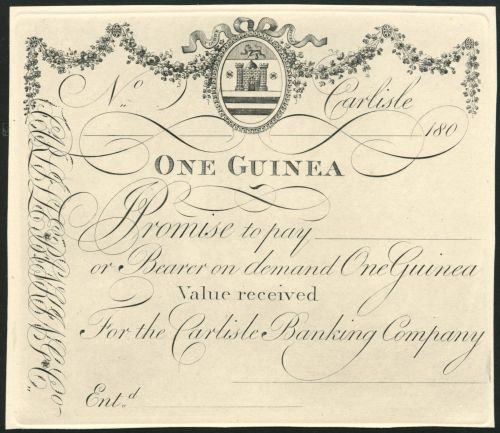 N.º Carlisle
180
ONE GUINEA
Promise to pay
or Bearer on demand One Guinea
Value received
For the Carlisle Banking Company
Ent.d